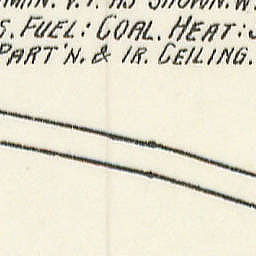 AS SHOWN. W.
S. FUEL: COAL. HEAT: S
PART'N. & IR. CEILING.